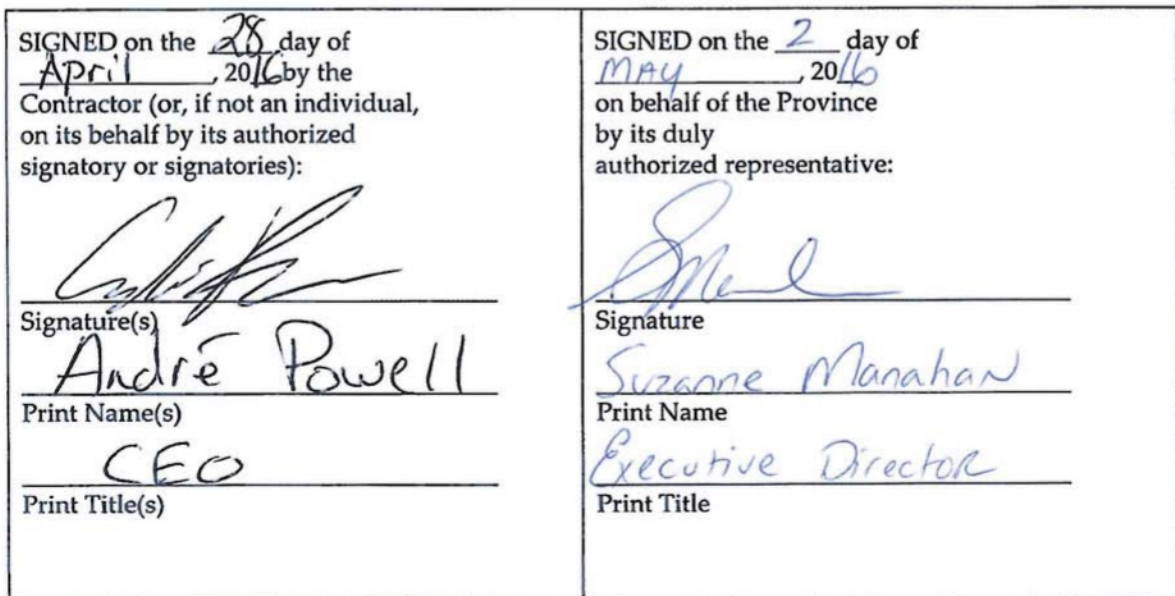 SIGNED on the 28 day of
April, 2016 by the
Contractor (or, if not an individual,
on its behalf by its authorized
signatory or signatories):
Signature(s)
André Powell
Print Name(s)
CEO
Print Title(s)
SIGNED on the 2 day of
MAY, 2016
on behalf of the Province
by its duly
authorized representative:
Signature
Suzanne Manahan
Print Name
Executive Director
Print Title